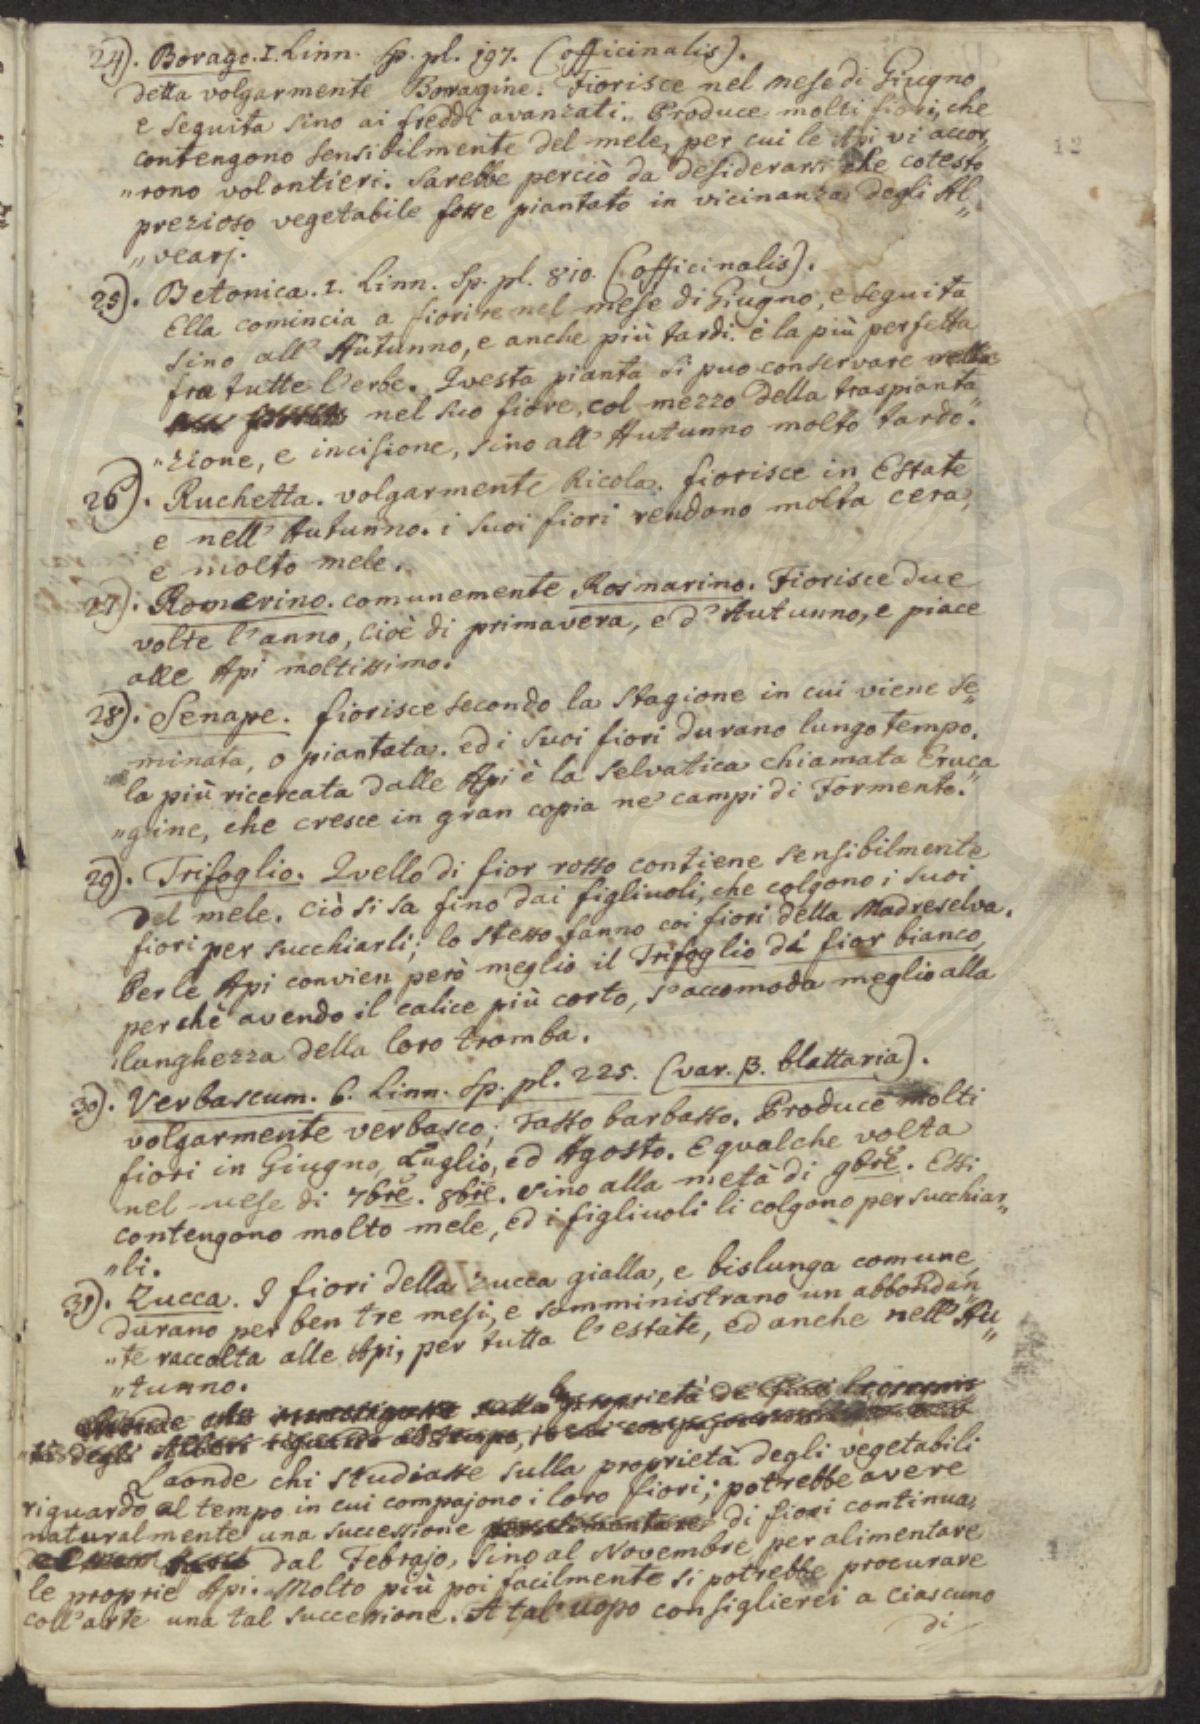 24). Borago. I. Linn. Sp. pl. 197. (officinalis).
detta volgarmente Borragine. Fiorisce nel mese di Giugno
e seguita sino ai freddi avanzati. Produce molti fiori, che
contengono sensibilmente del mele, per cui le Api vi accor„
„rono volontieri. Sarebbe perciò da desiderarsi che cotesto
prezioso vegetabile fosse piantato in vicinanza degli Al„
„vearj.
12
25). Betonica. I. Linn. Sp. pl. 810. (officinalis).
Ella comincia a fiorire nel mese di Giugno, e seguita
sino all' Autunno, e anche più tardi. è la più perfetta
fra tutte l'erbe. Questa pianta si può conservare
nel suo fiore, col mezzo della traspianta„
„zione, e incisione, sino all' Autunno molto tardo.
26). Ruchetta. volgarmente Ricola. fiorisce in Estate
e nell' Autunno. i suoi fiori rendono molta cera,
e molto mele.
27). Romerino. comunemente Rosmarino. Fiorisce due
volte l'anno, cioè di primavera, e d' Autunno, e piace
alle Api moltissimo.
28). Senape. fiorisce secondo la stagione in cui viene se„
minata, o piantata. ed i suoi fiori durano lungo tempo.
la più ricercata dalle Api è la selvatica chiamata Eruca„
„gine, che cresce in gran copia ne' campi di Formento.
29). Trifoglio. Quello di fior rosso contiene sensibilmente
del mele. ciò si sa fino dai figliuoli, che colgono i suoi
fiori per succhiarli; lo stesso fanno coi fiori della Madreselva.
Per le Api convien però meglio il Trifoglio di fior bianco,
perchè avendo il calice più corto, s'accomoda meglio alla
lunghezza della loro tromba.
30). Verbascum. 6. Linn. Sp. pl. 225. (var. β. blattaria).
volgarmente verbasco; Tasso barbasso. Produce molti
fiori in Giugno, Luglio, ed Agosto. E qualche volta
nel mese di 7bre. 8bre. sino alla metà di 9bre. Essi
contengono molto mele, ed i figliuoli li colgono per succhiar„
„li.
31). Zucca. I fiori della zucca gialla, e bislunga comune,
durano per ben tre mesi, e somministrano un abbondan„
„te raccolta alle Api, per tutta l'estate, ed anche nell' Au„
„tunno.
Laonde chi studiasse sulla proprietà degli vegetabili
riguardo al tempo in cui compajono i loro fiori; potrebbe avere
naturalmente una successione di fiori continua,
dal Febrajo, sino al Novembre per alimentare
le proprie Api. Molto più poi facilmente si potrebbe procurare
coll' arte una tal successione. A tal' uopo consiglierei a ciascuno
di